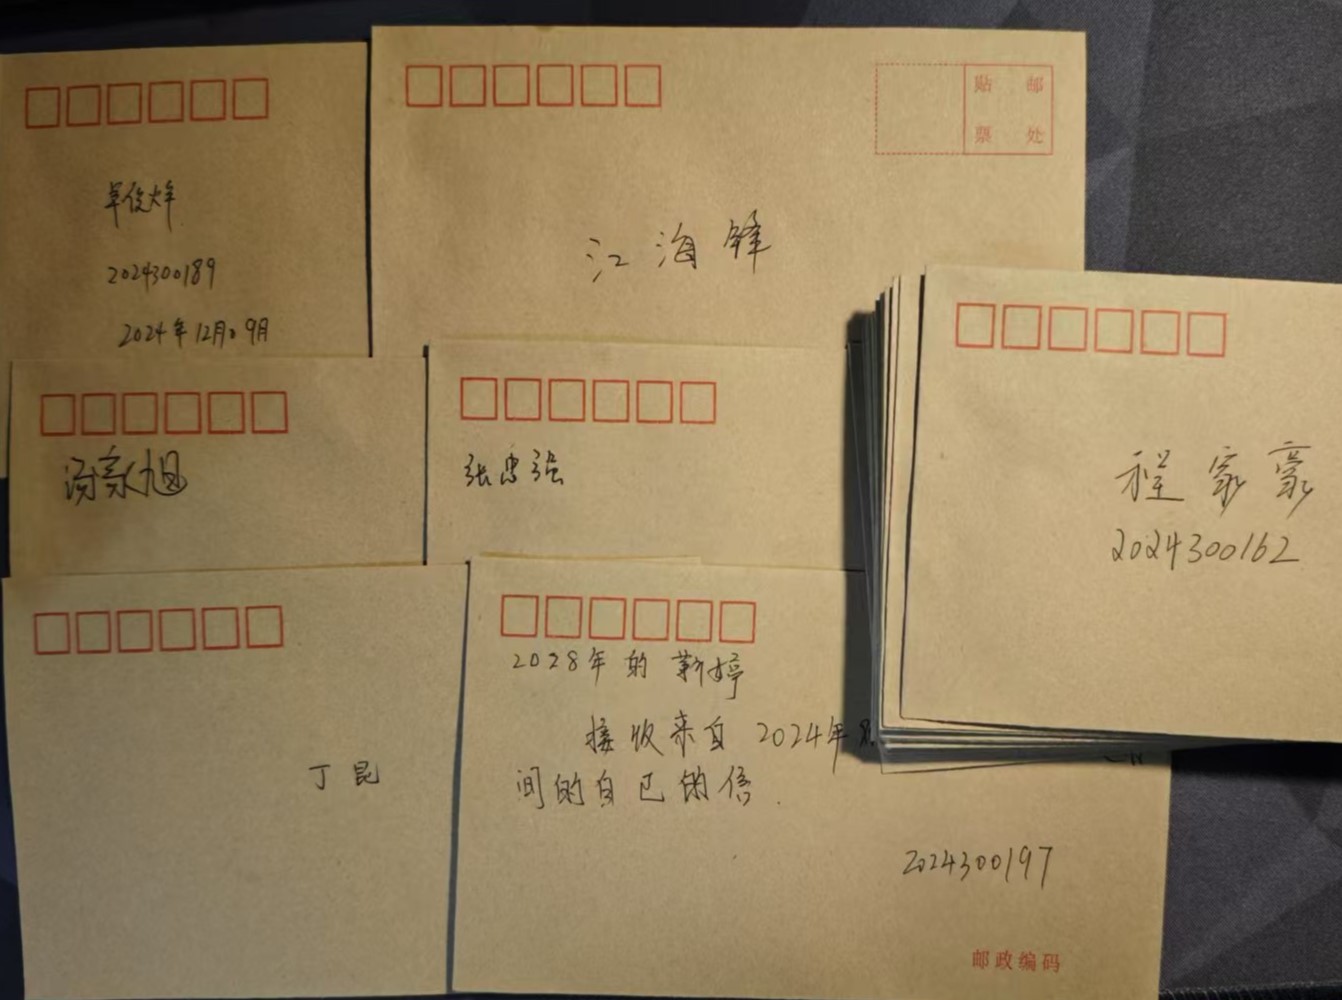 2024300189
2024年12月09月
贴 邮
票 处
江海锋
张忠强
程家豪
2024300162
丁昆
2028年的靳婷
接收来自2024年
间的自己的信.
2024300197
邮政编码